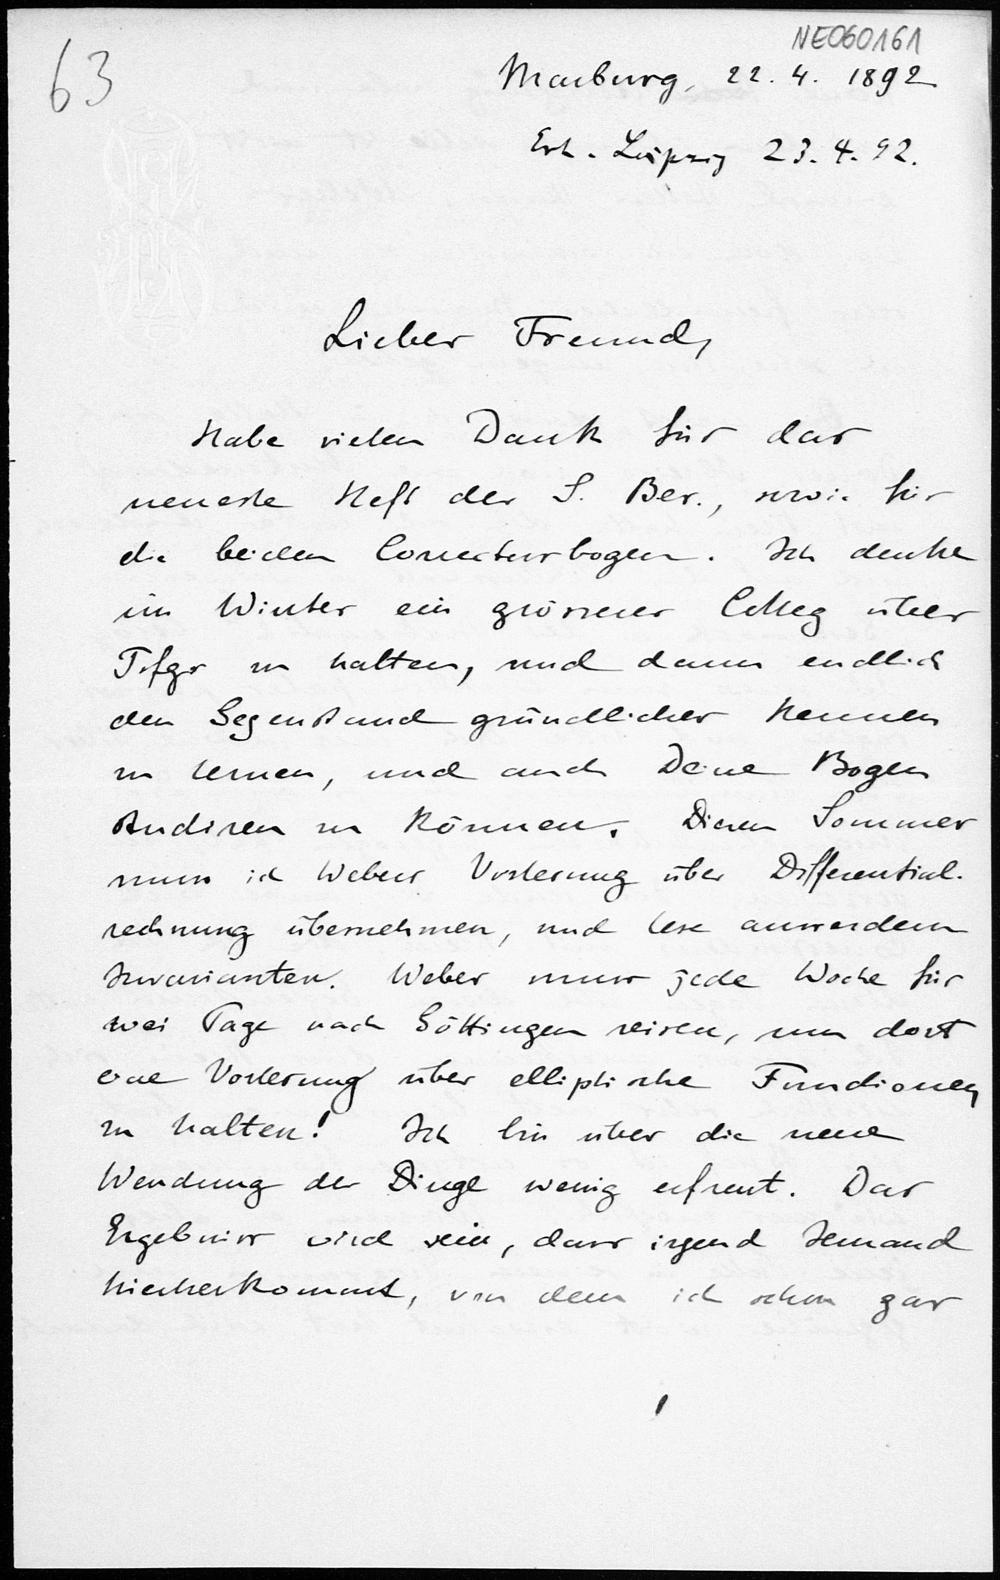 NE060161
63
Marburg, 22. 4. 1892
Erh. Leipzig 23. 4. 92.
Lieber Freund,
Habe vielen Dank für das
neueste Heft der S. Ber., sowie für
die beiden Correcturbogen. Ich denke
im Winter ein grösseres Colleg über
Trfgr zu halten, und dann endlich
den Gegenstand gründlicher kennen
zu lernen, und auch Deine Bogen
studiren zu können. Diesen Sommer
muss ich Webers Vorlesung über Differential-
rechnung übernehmen, und lese ausserdem
Invarianten. Weber muss jede Woche für
zwei Tage nach Göttingen reisen, um dort
eine Vorlesung über elliptische Functionen
zu halten! Ich bin über die neue
Wendung der Dinge wenig erfreut. Das
Ergebniss wird sein, dass irgend Jemand
hierherkommt, von dem ich schon gar